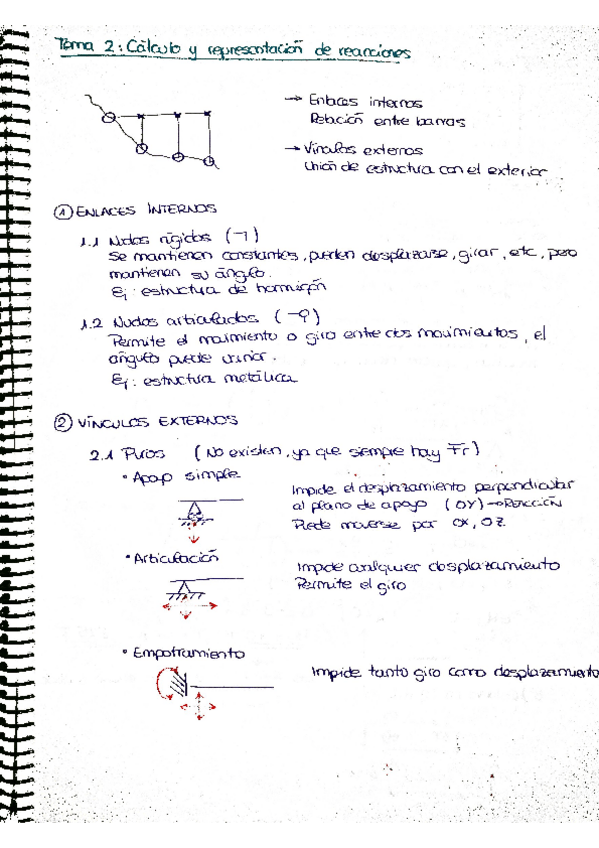 Tema 2: Cálculo y representación de reacciones
→ Enlaces internos
Relación entre barras
→ Vínculos externos
Unión de estructura con el exterior
① ENLACES INTERNOS
1.1 Nudos rígidos (¬)
Se mantienen constantes, pueden desplazarse, girar, etc, pero
mantienen su ángulo.
Ej: estructura de hormigón
1.2 Nudos articulados
Permite el movimiento o giro entre dos movimientos, el
ángulo puede variar.
Ej: estructura metálica
② VÍNCULOS EXTERNOS
2.1 Puros (No existen, ya que siempre hay Fr)
• Apoyo simple
Impide el desplazamiento perpendicular
al plano de apoyo (OY) → REACCIÓN
Puede moverse por OX, OZ.
• Articulación
Impide cualquier desplazamiento
Permite el giro
• Empotramiento
Impide tanto giro como desplazamiento